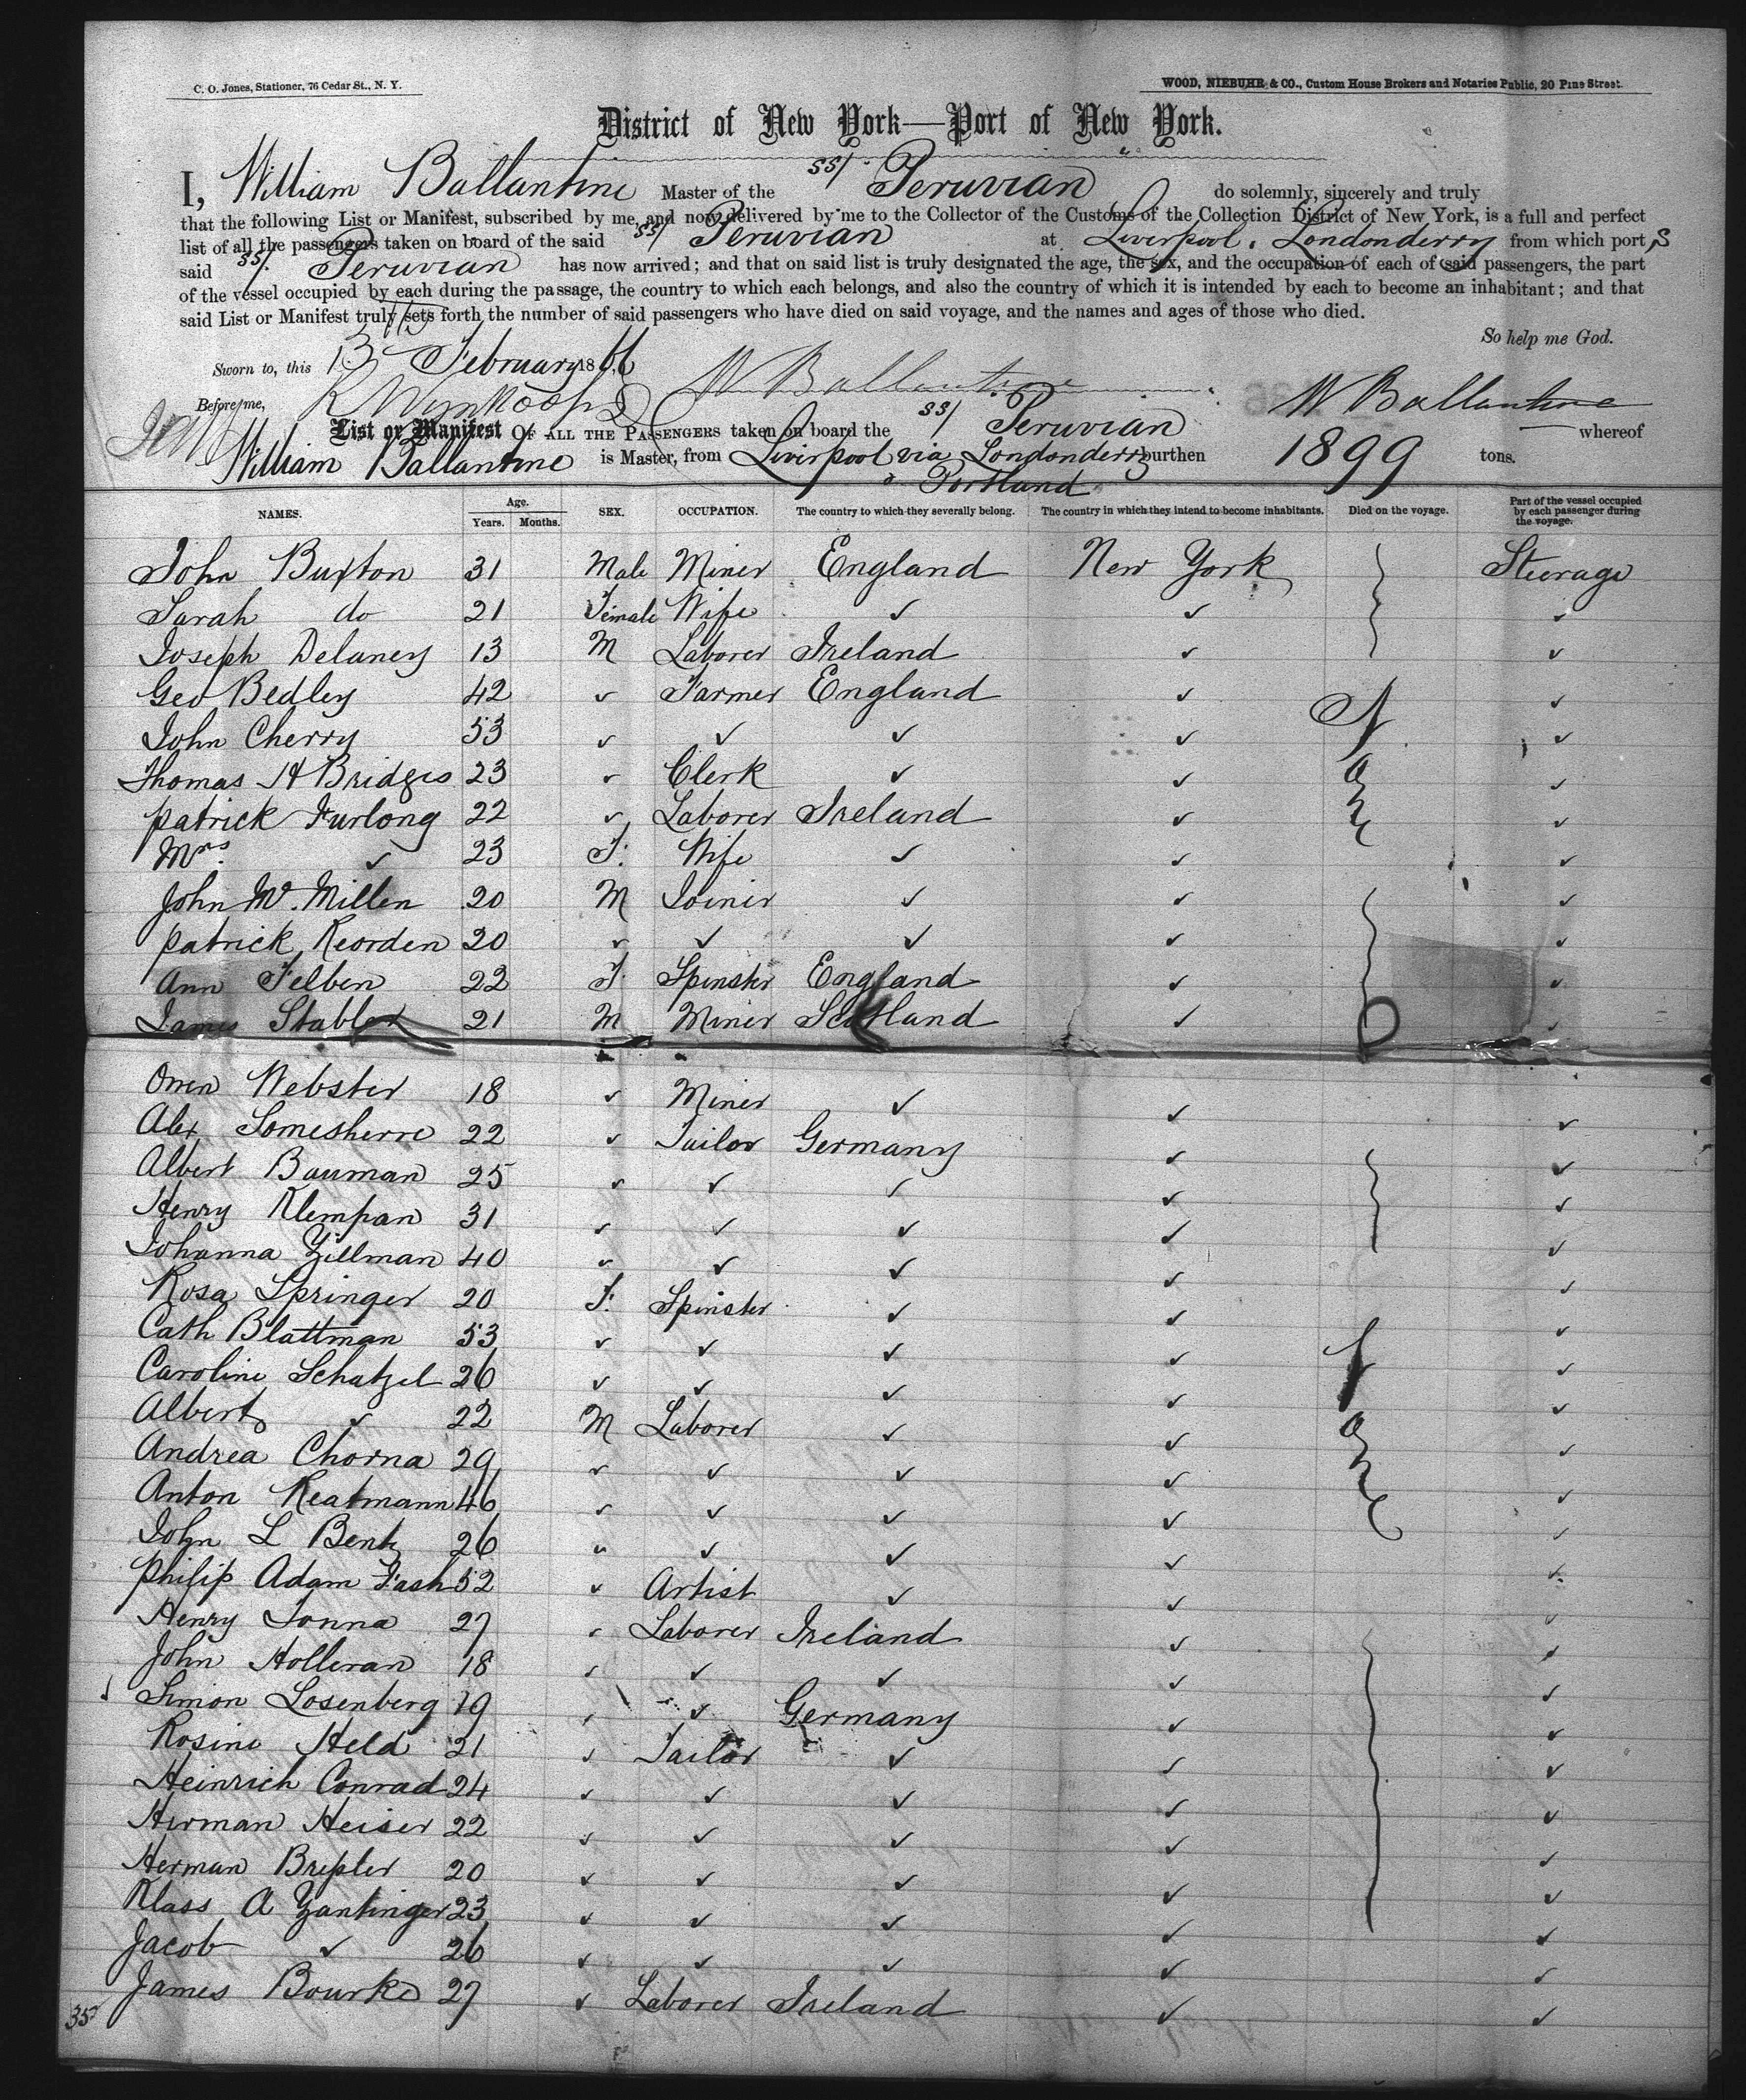 C. O. Jones, Stationer, 76 Cedar St., N. Y.
WOOD, NIEBUHR & CO., Custom House Brokers and Notaries Public, 20 Pine Street.
District of New York—Port of New York.
I, William Ballantine Master of the SS/ Peruvian do solemnly, sincerely and truly
that the following List or Manifest, subscribed by me, and now delivered by me to the Collector of the Customs of the Collection District of New York, is a full and perfect
list of all the passengers taken on board of the said SS/ Peruvian at Liverpool & Londonderry from which port s
said SS/. Peruvian has now arrived; and that on said list is truly designated the age, the sex, and the occupation of each of said passengers, the part
of the vessel occupied by each during the passage, the country to which each belongs, and also the country of which it is intended by each to become an inhabitant; and that
said List or Manifest truly sets forth the number of said passengers who have died on said voyage, and the names and ages of those who died.
So help me God.
Sworn to, this 13 February 1866 W Ballantine
Before me, W Ballantine
List or Manifest OF ALL THE PASSENGERS taken on board the SS/ Peruvian whereof
William Ballantine is Master, from Liverpool via Londonderry burthen 1899 tons.
& Portland
NAMES. Age. Years. Months. SEX. OCCUPATION. The country to which they severally belong. The country in which they intend to become inhabitants. Died on the voyage. Part of the vessel occupied by each passenger during the voyage.
John Buxton 31 Male Miner England New York Steerage
Sarah do 21 Female Wife ✓ ✓ ✓
Joseph Delaney 13 M Laborer Ireland ✓ ✓
Geo Bedley 42 ✓ Farmer England ✓ ✓
John Cherry 53 ✓ ✓ ✓ ✓ ✓
Thomas H Bridges 23 ✓ Clerk ✓ ✓ ✓
Patrick Furlong 22 ✓ Laborer Ireland ✓ ✓
Mrs. ✓ 23 F. Wife ✓ ✓ ✓
John McMillen 20 M Joiner ✓ ✓ ✓
Patrick Reorden 20 ✓ ✓ ✓ ✓ ✓
Ann Felben 22 F Spinster England ✓ ✓
James Stabler 21 M Miner Scotland ✓ ✓
Owen Webster 18 ✓ Miner ✓ ✓ ✓
Alex 22 ✓ Tailor Germany ✓ ✓
Albert Bauman 25 ✓ ✓ ✓ ✓ ✓
Henry Klempan 31 ✓ ✓ ✓ ✓ ✓
Johanna Zillman 40 ✓ ✓ ✓ ✓ ✓
Rosa Springer 20 F. Spinster ✓ ✓ ✓
Cath Blattman 53 ✓ ✓ ✓ ✓ ✓
Caroline Schatzel 26 ✓ ✓ ✓ ✓ ✓
Albert ✓ 22 M Laborer ✓ ✓ ✓
Andrea Chorna 29 ✓ ✓ ✓ ✓ ✓
Anton Reatmann 46 ✓ ✓ ✓ ✓ ✓
John L Bentz 26 ✓ ✓ ✓ ✓ ✓
Philip Adam Fash 52 ✓ Artist ✓ ✓ ✓
Henry Tonna 27 ✓ Laborer Ireland ✓ ✓
John Holleran 18 ✓ ✓ ✓ ✓ ✓
Simon Losenberg 19 ✓ ✓ Germany ✓ ✓
Rosine Held 21 ✓ Tailor ✓ ✓ ✓
Heinrich Conrad 24 ✓ ✓ ✓ ✓ ✓
Herman Heiser 22 ✓ ✓ ✓ ✓ ✓
Herman 20 ✓ ✓ ✓ ✓ ✓
Klass A Zantinger 23 ✓ ✓ ✓ ✓ ✓
Jacob ✓ 26 ✓ ✓ ✓ ✓ ✓
James Bourke 27 ✓ Laborer Ireland ✓ ✓
35